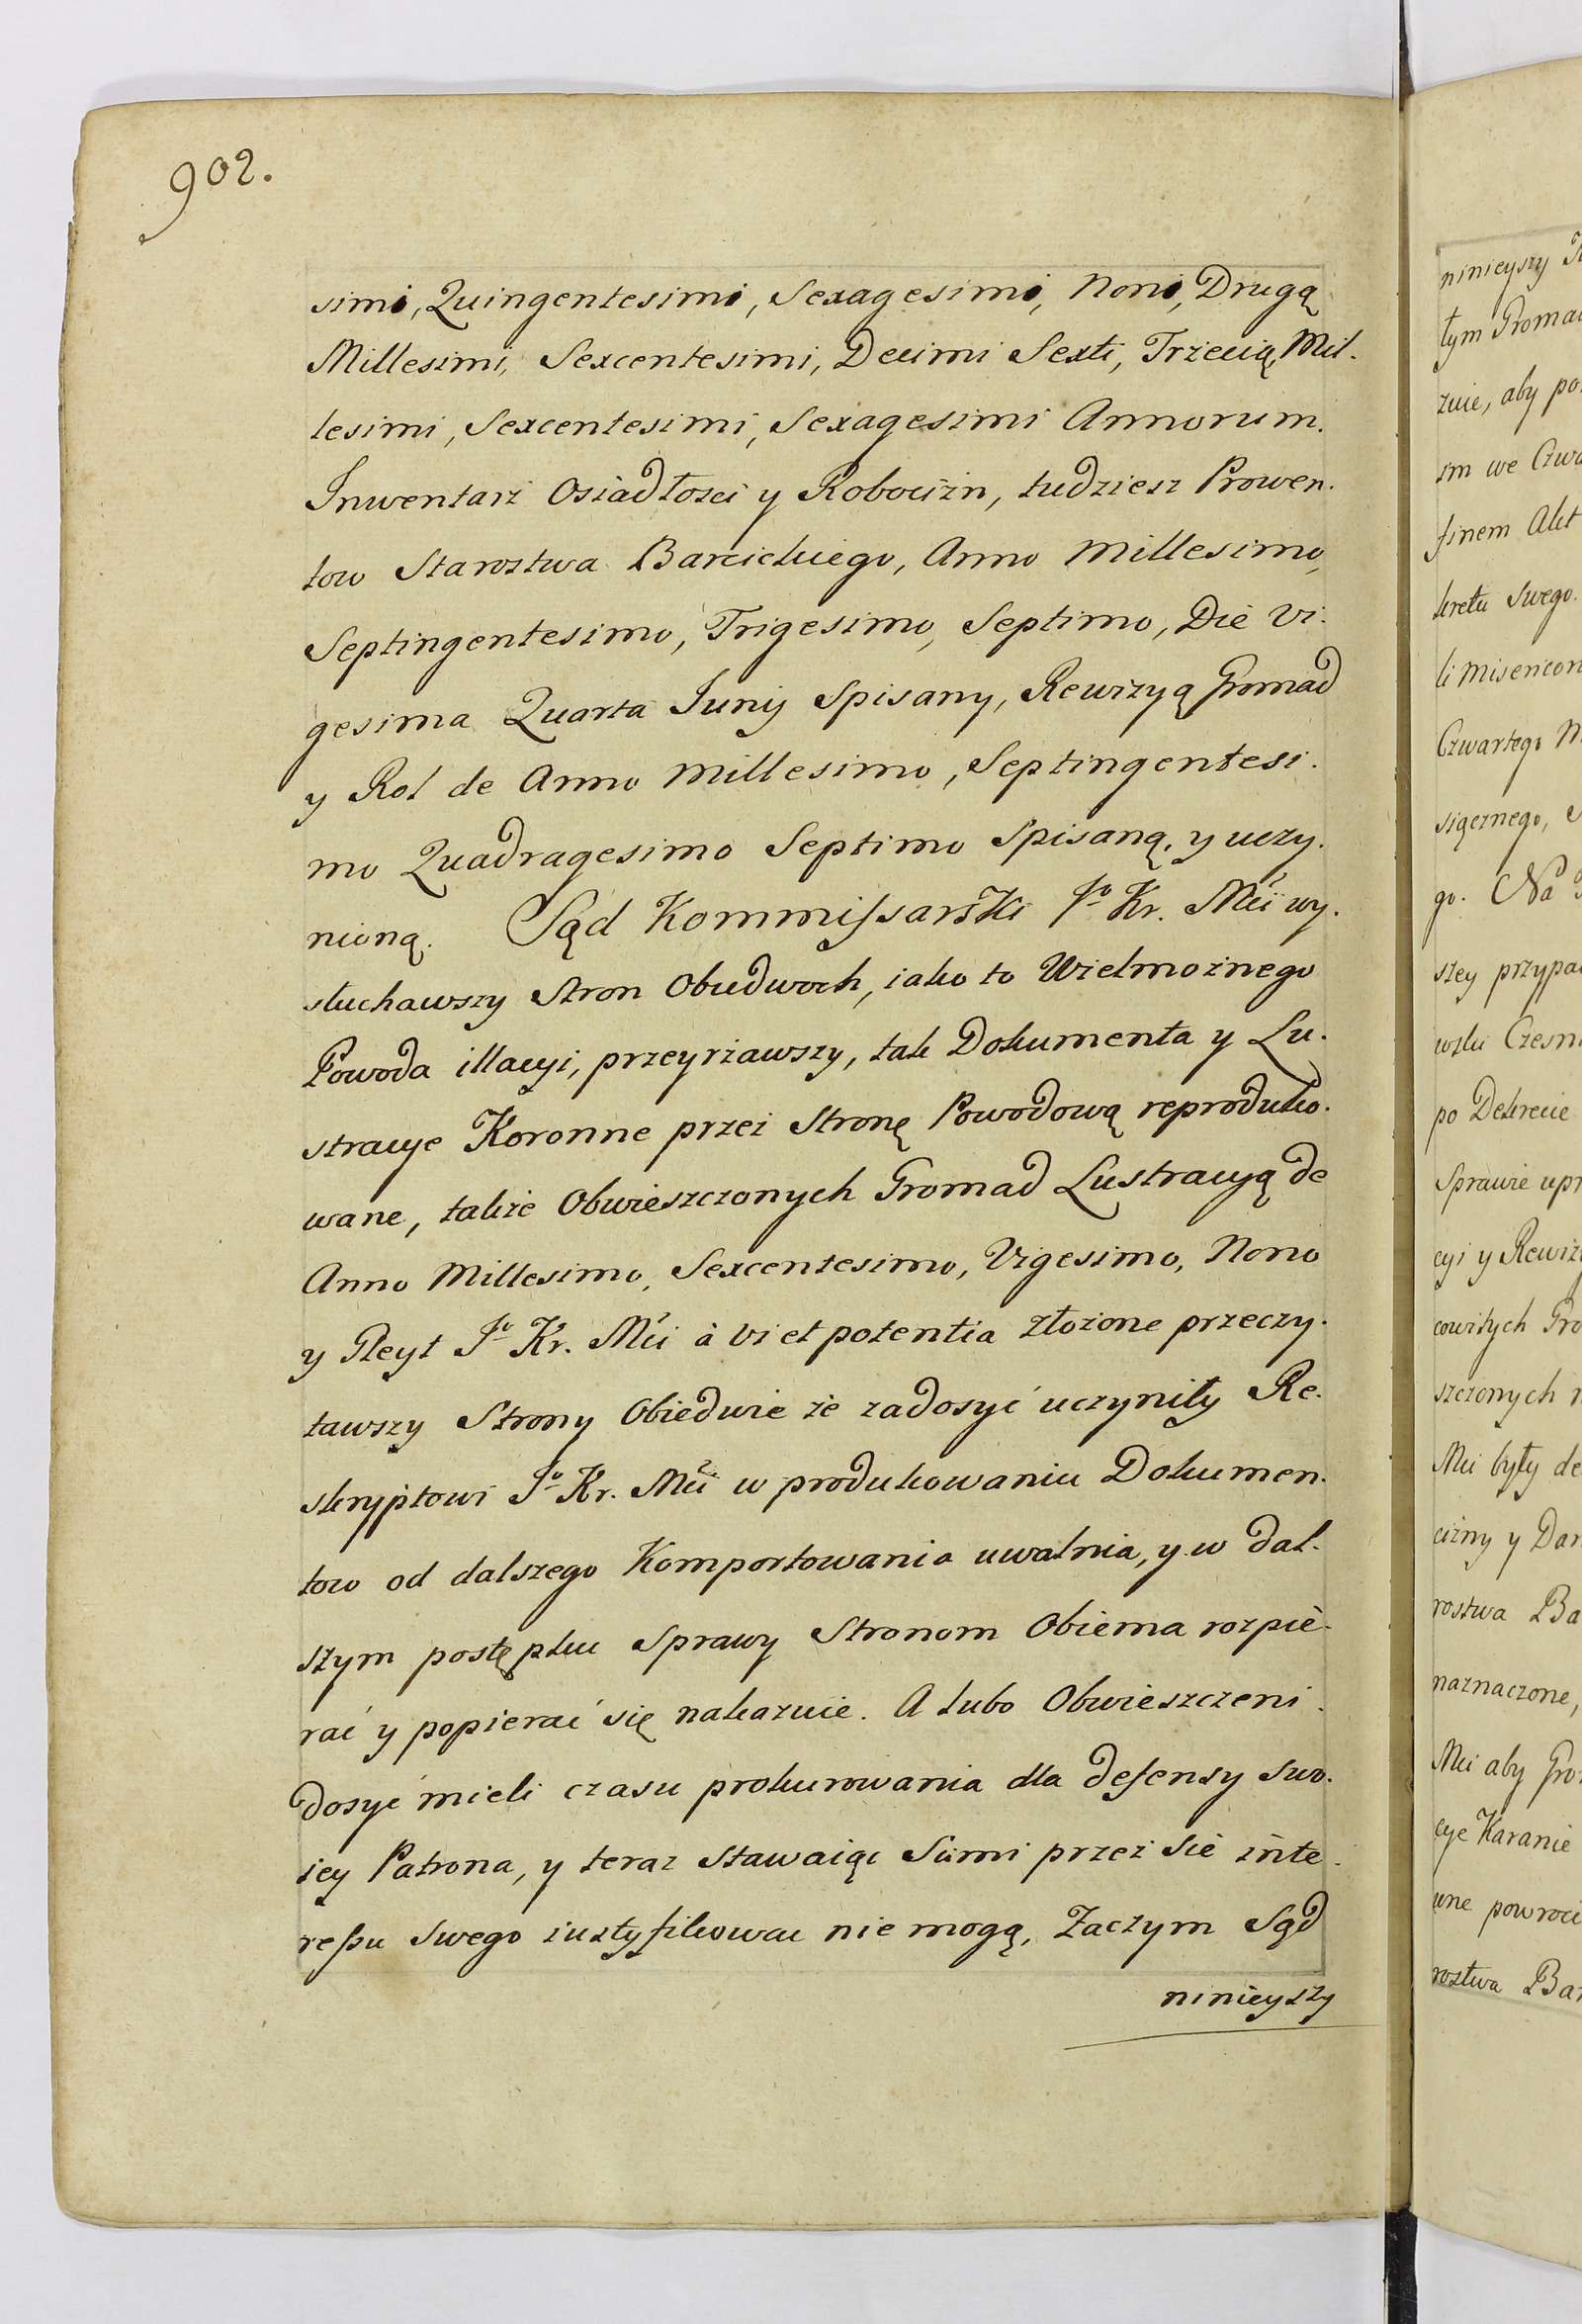 902.
simi, Quingentesimi, Sexagesimi, Noni, Drugą
Millesimi, Sexcentesimi, Decimi Sexti, Trzecią, Mil-
lesimi, Sexcentesimi, Sexagesimi Annorum.
Inwentarz Osiadłości y Robocizn, tudziesz Prowen-
tow Starostwa Barcickiego, Anno Millesimo,
Septingentesimo, Trigesimo, Septimo, Die Vi-
gesima Quarta Junij Spisany, Rewizyą Gromad
y Rol de Anno Millesimo, Septingentesi-
mo Quadragesimo Septimo Spisaną, y uczy-
nioną. Sąd Kommissarski Jo Kr. Mci wy-
słuchawszy Stron Obudwoch, iako to Wielmożnego
Powoda illacyi, przeyrzawszy, tak Dokumenta y Lu-
stracye Koronne przez Stronę Powodową reproduko-
wane, także Obwieszczonych Gromad Lustracyą de
Anno Millesimo, Sexcentesimo, Vigesimo, Nono
y Gleyt Jo Kr. Mci à vi et potentia złożone przeczy-
tawszy Strony Obiedwie że zadosyć uczyniły Re-
skryptowi Jo Kr. Mci w produkowaniu Dokumen-
tow od dalszego Komportowania uwalnia, y w dal-
szym postępku Sprawy Stronom Obiema rozpie-
rać y popierać się nakazuie. A lubo Obwieszczeni
dosyć mieli czasu prokurowania dla defensy swo-
iey Patrona, y teraz Stawaiąc Sami przez Sie inte-
ressu swego iustyfikowac nie mogą, Zaczym Sąd
ninieyszy
ninieyszy
tym Gromad
zuie, aby po
sm we Czwa
finem Akt
kretu swego.
li Misericor
Czwartego
siącznego,
go. Na
szey przypa
wsku Czesn
po Dekrecie
Sprawie upr
cyi y Rewiz
cowitych Gro
szczonych
Mci były de
cizny y Dan
rostwa Ba
naznaczone,
Mci aby Gro
cye Karanie
une powroci
rostwa Bar